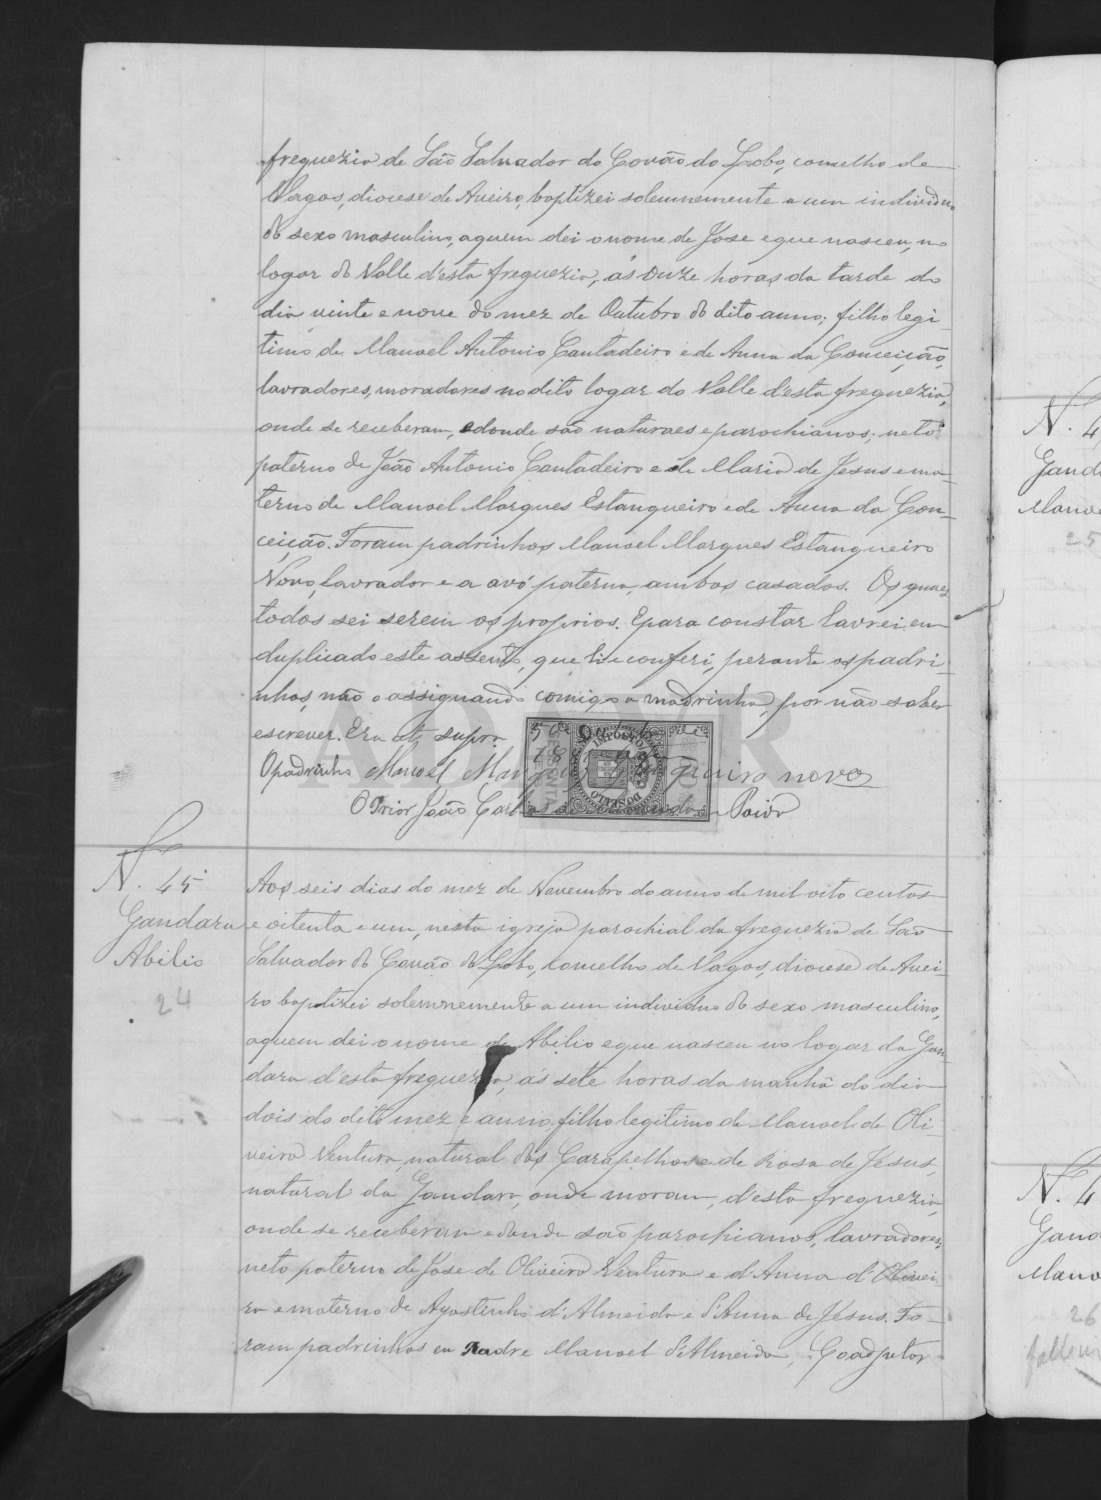 freguezia de São Salvador do Covão do Lobo, concelho de
Vagos, diocese de Aveiro, baptizei solemnemente a um individuo
do sexo masculino, a quem dei o nome de Jose e que nasceu, no
logar do Valle d'esta freguezia, ás onze horas da tarde do
dia vinte e nove do mez de Outubro do dito anno; filho legi-
timo de Manoel Antonio Cantadeiro e de Anna da Conceição,
lavradores, moradores no dito logar do Valle d'esta freguezia,
onde se receberam, e donde são naturaes e parochianos; neto
paterno de João Antonio Cantadeiro e de Maria de Jesus e ma-
terno de Manoel Marques Estanqueiro e de Anna da Con-
ceição. Foram padrinhos Manoel Marques Estanqueiro
Novo, lavrador e a avó paterna, ambos casados. Os quaes
todos sei serem os proprios. E para constar lavrei em
duplicado este assento, que li e conferi, perante os padri-
nhos, não o assignando comigo a madrinha, por não saber
escrever. Era ut supra.
O padrinho Manoel Marques Estanqueiro novo
O Prior João Paiva
IMPOSTO DO SELLO
ADAVR
N. 45
Gandara
Abilio
24
Aos seis dias do mez de Novembro do anno de mil oito centos
e oitenta e um, nesta igreja parochial da freguezia de São
Salvador do Covão do Lobo, concelho de Vagos, diocese de Avei-
ro baptizei solemnemente a um individuo do sexo masculino,
a quem dei o nome de Abilio e que nasceu no logar da Gan-
dara d'esta freguezia, ás sete horas da manhã do dia
dois do dito mez e anno, filho legitimo de Manoel de Oli-
veira Ventura, natural dos Carapelhos e de Rosa de Jesus,
natural da Gandara, onde moram, d'esta freguezia,
onde se receberam e donde são parochianos, lavradores,
neto paterno de Jose de Oliveira Ventura e d'Anna d'Olivei-
ra e materno de Agostinho d'Almeida e d'Anna de Jesus. Fo-
ram padrinhos eu Padre Manoel d'Almeida, Coadjutor
N. 4
Gand
Mano
25
N. 4
Gand
Mano
26